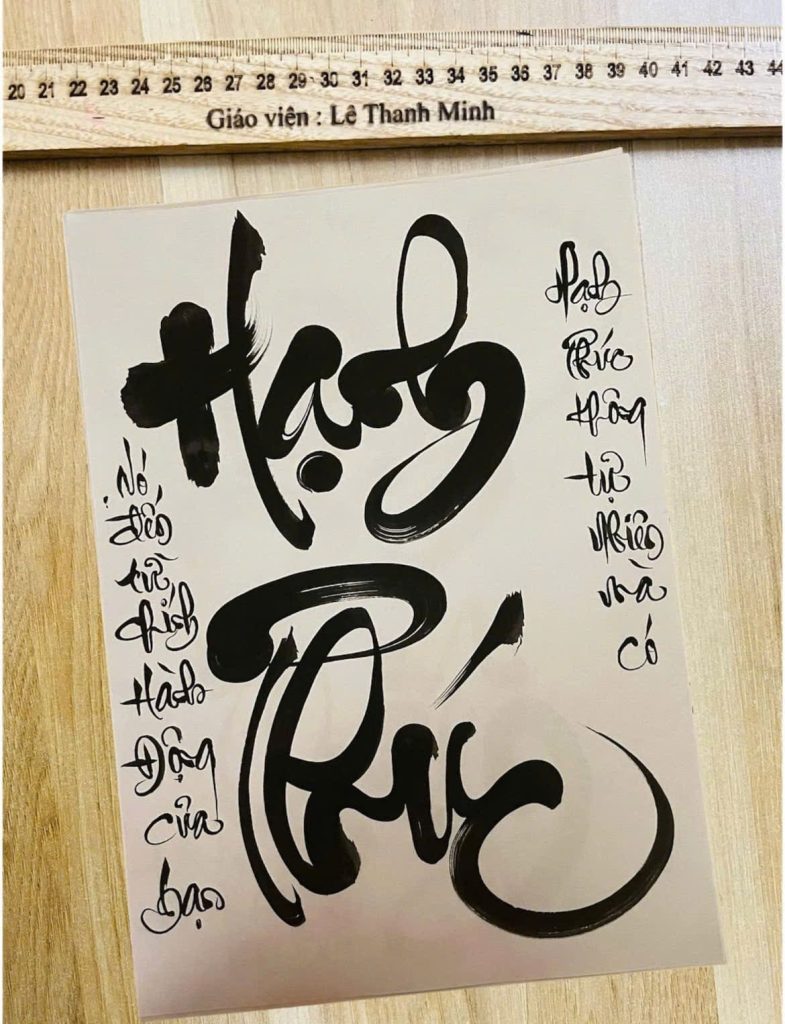 20 21 22 23 24 25 26 27 28 29 30 31 32 33 34 35 36 37 38 39 40 41 42 43 44
Giáo viên : Lê Thanh Minh
Hạnh
Phúc
Hạnh
Phúc
Không
tự
Nhiên
mà
có
Nó
đến
từ
chính
Hành
Động
của
bạn